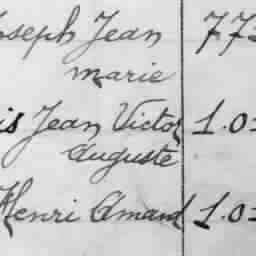 Joseph Jean 773
marie
is Jean Victor 1.0
auguste
Henri Amand 1.0